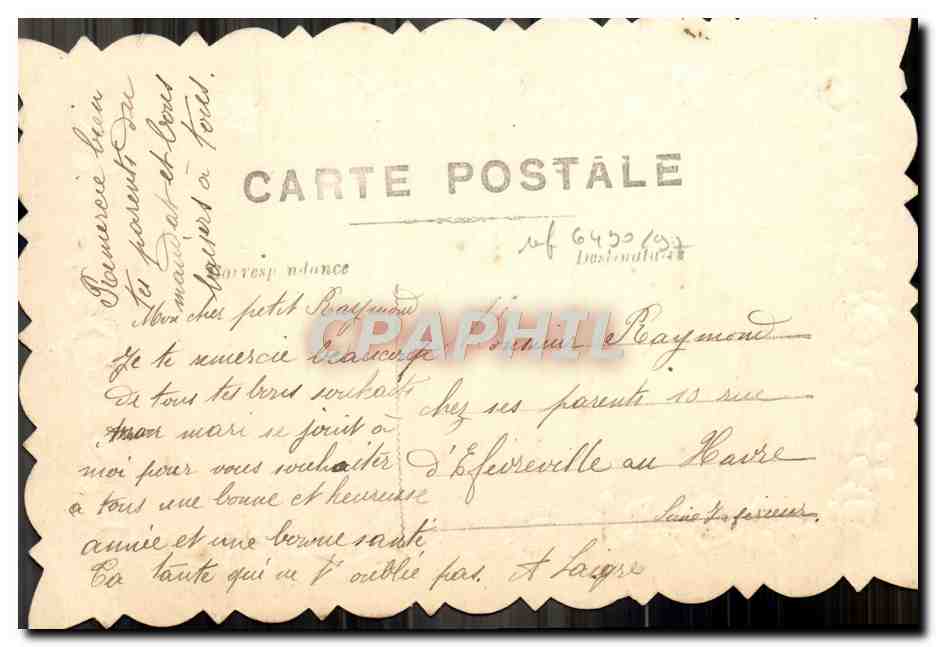 Remercie bien
tes parents du
mandat et vous
baisers à tous.
CARTE POSTALE
ref 6490/97
Correspondance
Destinataire
CPAPHIL
Mon cher petit Raymond
Je te remercie beaucoup
de tous tes bons souhaits
mon mari se joint à
moi pour vous souhaiter
à tous une bonne et heureuse
année et une bonne santé
Ta tante qui ne t'oublie pas. A Laigre
Monsieur Raymond
chez ses parents 10 rue
d'Efevreville au Havre
Seine Inférieure.